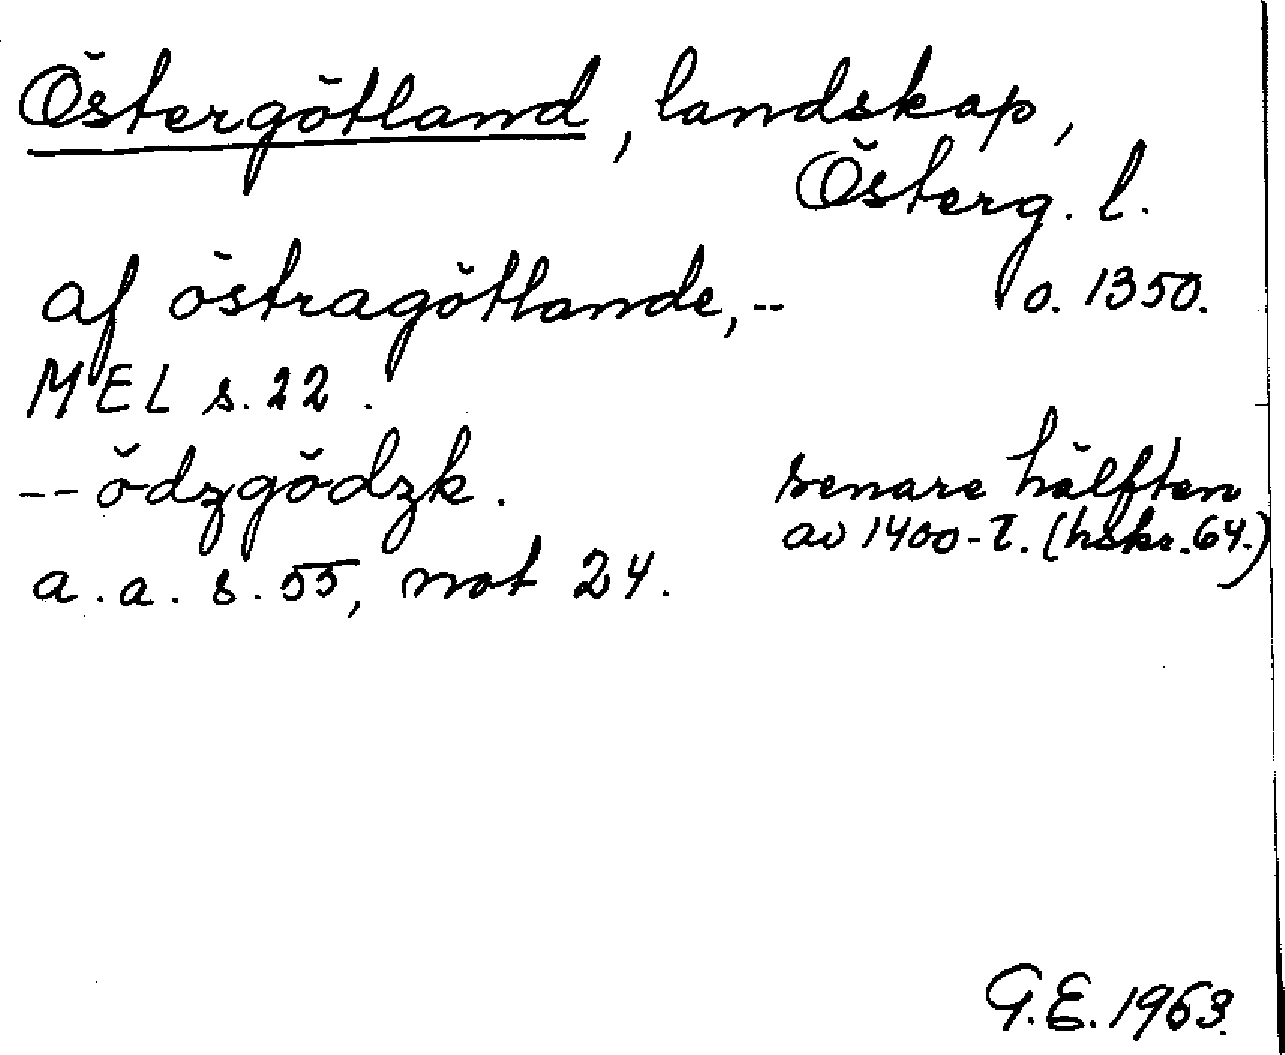 Östergötland, landskap,
Österg. l.
af östragötlande, -- o. 1350.
MEL s. 22.
-- ödzgödzk. senare hälften
av 1400-t. (hskr. 64.)
a. a. s. 55, not 24.
G.E. 1963.